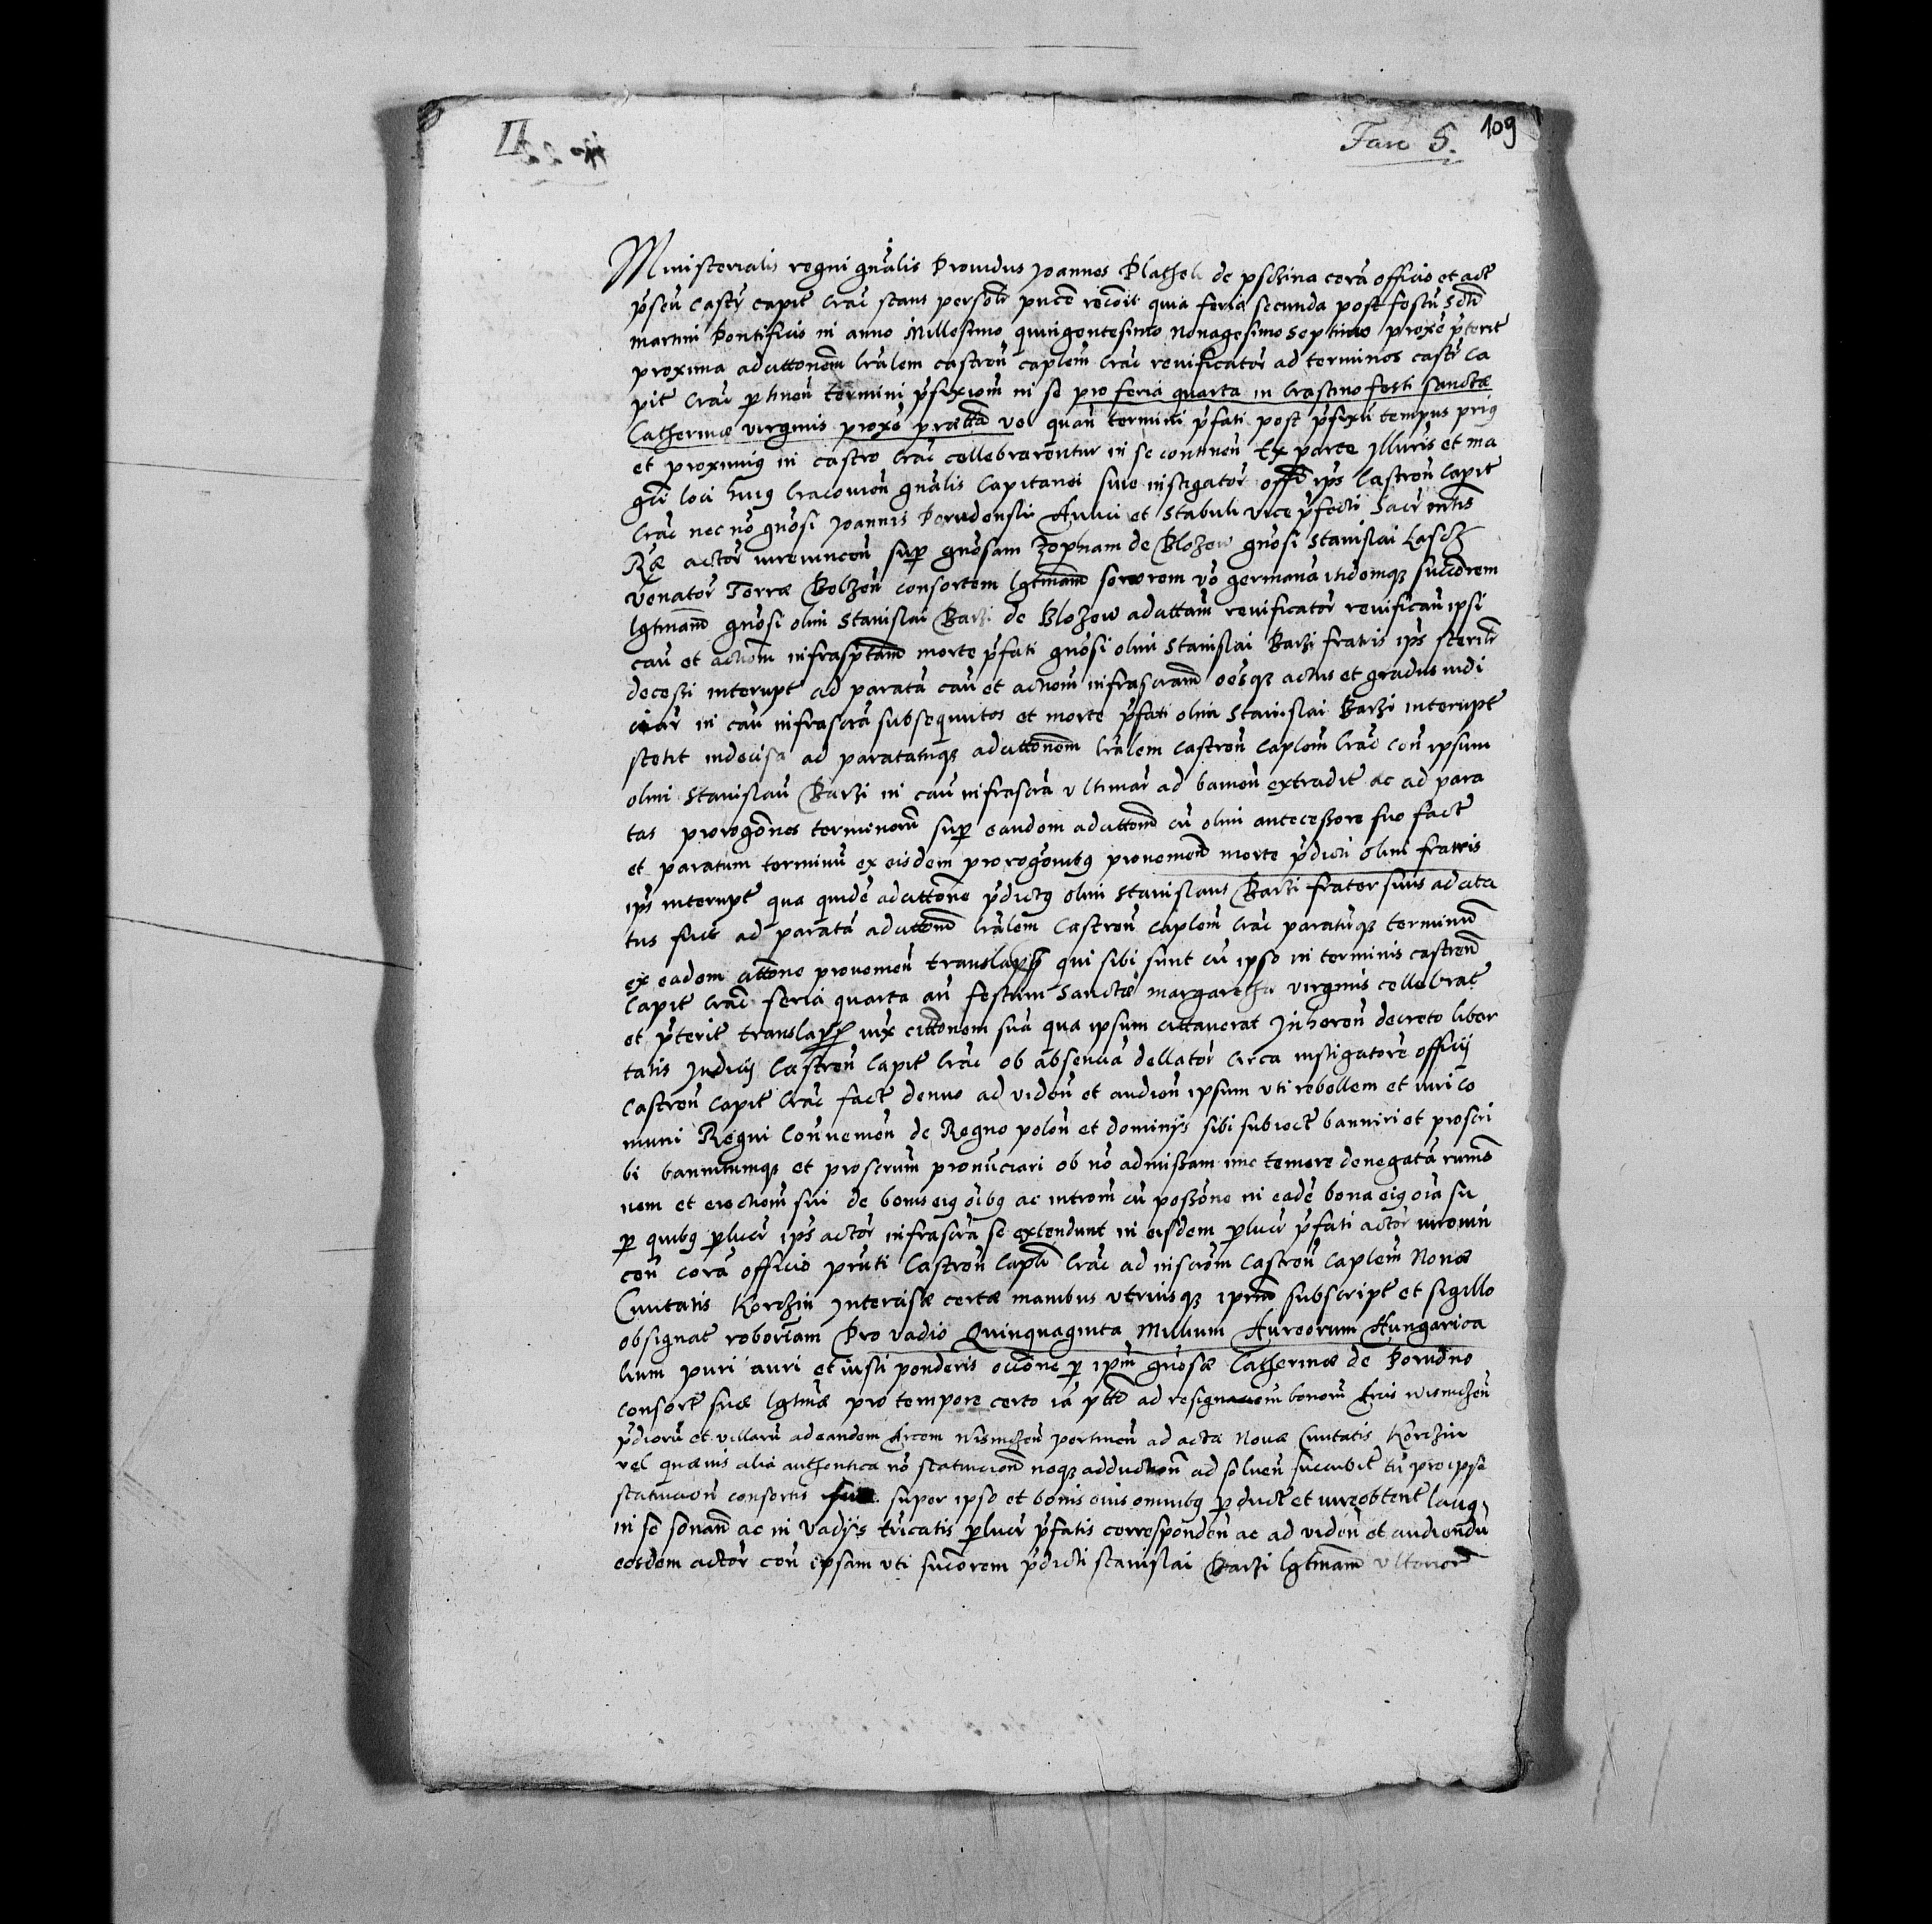 II
Fasc 5. 109
Ministerialis regni gnãlis Providus Joannes Plathek de pschina corã officio et act
p̃sen Castr̃ capit Crac̃ stans personlr̃ pucẽ recoñit quia feria secunda post festũ Scti
martini Pontificis in anno Millesimo quingentesimo Nonagesimo Septimo proxẽ p̃terit
proxima adcittonem lr̃alem castreñ caplem̃ Crac̃ reuificator̃ ad terminos castr̃ Ca
pit Crac̃ p tineñ termini p̃fixiom̃ in se pro feria quarta in Crastino festi sanctæ
Catherinæ virginis proxẽ prættã vel quañ termini p̃fati post p̃fixũ tempus prius
et proximius in castro Crac̃ cellebrarentur in se contineñ Ex parte Illuris et ma
gci loci huius Cracouien̄ gnãlis Capitanei siue instigator̃ offi ips Castreñ Capit
Crac̃ nec nõ gnõsi Joannis Porudenski Aulici et Stabuli vice p̃fecti Sacr̃ mtis
Rꝫ actor̃ iureuincen̄ sup gnõsam Zophiam de Blozew gnõsi Stanislai Lasch
Venator̃ Terræ Belzen̄ consortem lgtmam̃ sororem võ germanã itidemqꝫ succorem
lgtmam̃ gnõsi olim Stanislai Barzi de Blozew adcittam̃ reuificator̃ reuificañ ipsi
cau et actiom̃ infrasp̃tam̃ morte p̃fati gnõsi olim Stanislai Barzi fratris ips sterilr̃
decessi interupt ad paratã cau et actiom̃ infrascram̃ oesqꝫ actus et gradus iudi
ciar̃ in cau infrascrã subsequutos et morte p̃fati olim Stanislai Barzi interupt
stetit indecisa ad paratamqꝫ adcittonem̃ lr̃alem castreñ caplem̃ Crac̃ con̄ ipsum
olim Stanislaũ Barzi in cau infrascrã vltimar̃ ad bannen̄ extradit ac ad para
tas prorogõnes terminorũ sup eandem adcittonem̃ cũ olim antecessore suo fact
et paratum terminũ ex eisdem prorogõnibus prouenien̄ morte p̃dicti olim fratris
ips interupt qua quidẽ adcittone p̃dictus olim Stanislaus Barzi frater suus adcita
tus fuit ad paratã adcittonem̃ lr̃alem Castreñ caplem̃ Crac̃ paratũqꝫ terminũ
ex eadem cittone prouenien̄ qui sibi sunt cũ ipso in terminis castreñ
Capit Crac̃ feria quarta añ festum Sanctæ margarethæ virginis cellebrat
et p̃terit iux cittonem suã qua ipsum cittauerat Inheren̄ decreto liber
tatis Judicij Castreñ Capit Crac̃ ob absenciã dellator̃ circa instigatorẽ officij
Castreñ Capit Crac̃ fact denuo ad viden̄ et audien̄ ipsum vti rebellem et iuri co
muni Regni Conuenien̄ de Regno polon̄ et dominijs sibi subiect banniri et proscri
bi bannitumqꝫ et proscrum̃ pronũciari ob nõ admissam imo temere denegatã rumõ
nem et eiectiom̃ sui de bonis eius oibus ac introm̃ cũ possõne in eadẽ bona eius oia su
p quibus plucr̃ ips actor̃ infrascrã se extendunt in eisdem plucr̃ p̃fati actor̃ iureuin
cen̄ corã officio pr̃nti Castreñ Capli Crac̃ ad inscrom̃ Castreñ Caplem̃ Nouæ
Ciuitatis Korczin Intercisæ certæ manibus vtriusqꝫ ipm̃ subscript et sigillo
obsignat roboriam Pro vadio Quinquaginta Millium Aureorum Hungarica
lium puri auri et iusti ponderis occõne p ipm̃ gnõsæ Catherinæ de Porudno
consort suæ lgtmæ pro tempore certo iã pttõ ad resignaciom̃ bonorũ Arcis wisniczen̄
p̃diorũ et villarũ ad eandem Arcem wisniczen̄ pertinen̄ ad acta Nouæ Ciuitatis Korczin
vel quæuis alia authentica nõ statuiciom̃ neqꝫ adductiom̃ ad soluen̄ succubit tũ pro ipsa
statuicion̄ consortis super ipso et bonis eius omnibus p duct et iure obtent laciꝰ
in se sonañ ac in vadijs tricatis plucr̃ p̃fatis corresponden̄ ac ad viden̄ et audiendũ
eosdem actor̃ con̄ ipsam vti succorem p̃dicti Stanislai Barzi lgtmam̃ vlterior̃